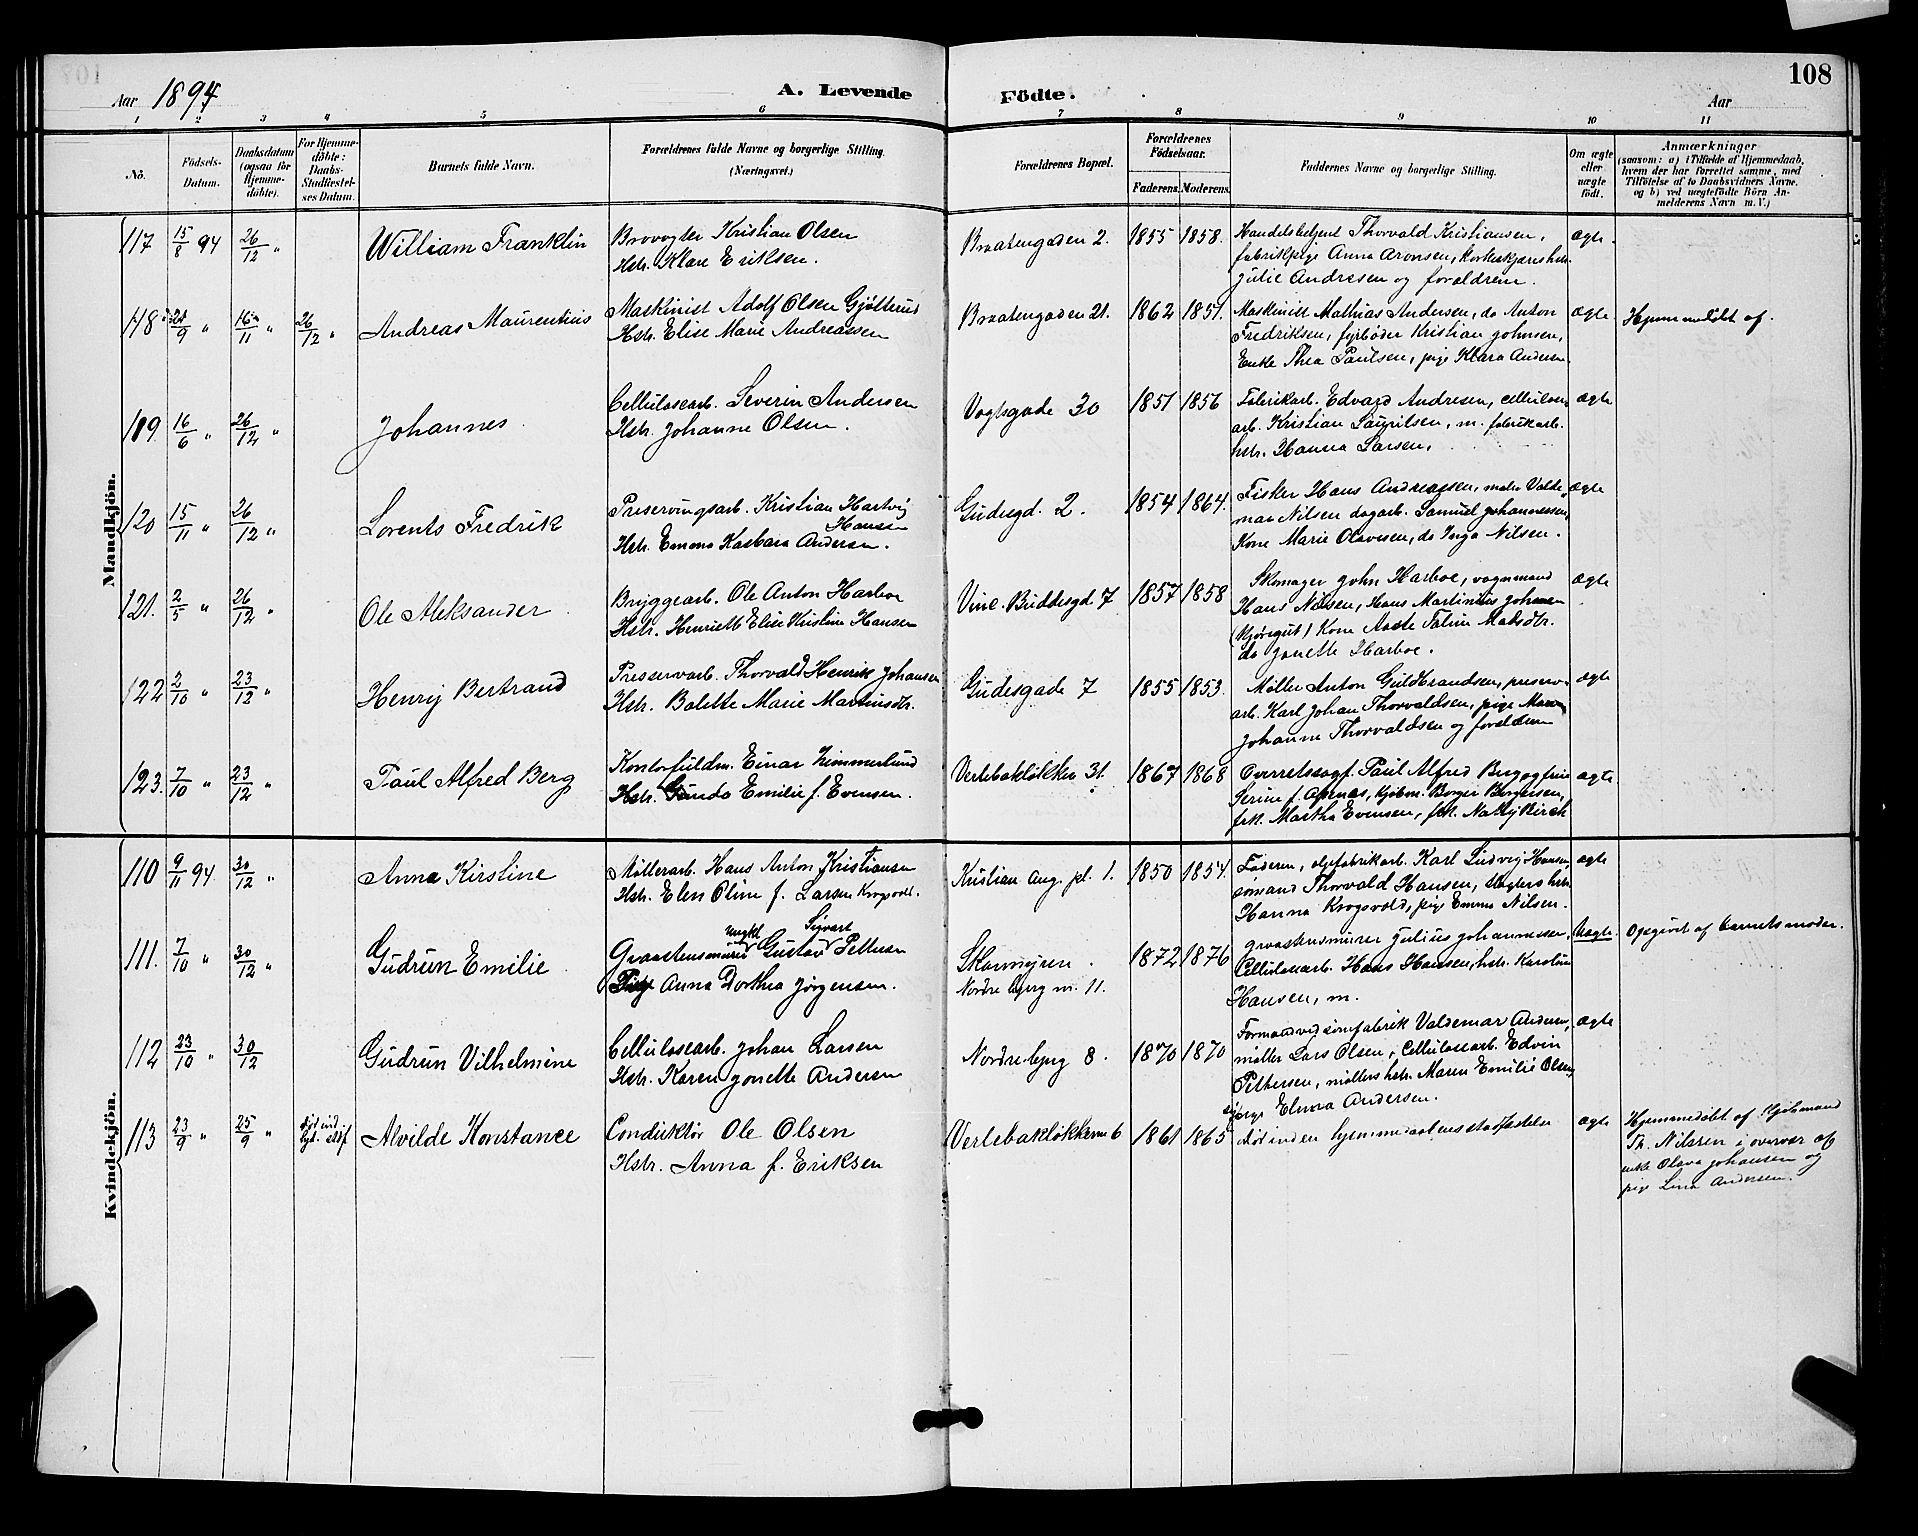 108
Aar 1894 A. Levende Födte. Aar
1 2 3 4 5 6 7 8 9 10 11
No.
Födsels-Datum.
Daabsdatum (ogsaa for Hjemme-döbte).
For Hjemme-döbte: Daabs-Stadfæstel-ses Datum.
Barnets fulde Navn.
Forældrenes fulde Navne og borgerlige Stilling. (Næringsvei.)
Forældrenes Bopæl.
Forældrenes Födselsaar.
Faderens. Moderens.
Faddernes Navne og borgerlige Stilling.
Om ægte eller uægte födt.
Anmærkninger
(saasom: a) i Tilfælde af Hjemmedaab,
hvem der har forrettet samme, med
Tilföielse af to Daabsvidners Navne.
og b) ved uægtefödte Börn An-
melderens Navn m. V.)
Mandkjön.
117 15/8 94 26/12 " William Franklin
Brovogter Kristian Olsen
Hstr. Klare Eriksen.
Braatengaden 2. 1855 1858.
Handelsbetjent Thorvald Kristiansen,
fabrikpige Anna Aronsen, korkeskjærershstr.
Julie Andresen og forældrene.
ægte.
118 21/9 " 16/11 " 26/12 " Andreas Maurentius
Maskinist Adolf Olsen Gjøtterud
Hstr. Elise Marie Andreassen
Braatengaden 21. 1862 1851.
Maskinist Mathias Andersen, do Anton
Fredriksen, fyrbøder Kristian Johnsen,
Enke Thea Paulsen, pige Klara Andersen
ægte
Hjemmedöbt af.
119. 16/6 " 26/12 " Johannes.
Cellulosearb. Severin Andersen
Hstr. Johanne Olsen.
Vogtsgade 30 1851 1856
Fabrikarb. Edvard Andresen, cellulose
arb. Kristian Lauritsen, m. fabrikarb.
hstr. Hanna Larsen.
ægte
120 15/11 " 26/12 " Lorents Fredrik
Preservingsarb. Kristian Hartvig
Hansen
Hstr. Emma Karbara Andersen.
Gudesgd. 2. 1854 1864.
Fisker Hans Andreassen, maler Valde
mar Nilsen dagarb. Samuel Johannessen,
Kone Marie Olavesen, do Inga Nilsen.
ægte
121. 2/5 " 26/12 " Ole Aleksander
Bryggearb. Ole Anton Harboe
Hstr. Henriette Elise Kristine Hansen
Vinc. Buddesgd 7 1857 1858
Skomager John Harboe, vognmand
Hans Nilsen, Hans Martinius Johnsen
(kjøregut) Kone Aaste Taline Matsdtr.
do Jonette Harboe.
ægte
122 2/10 " 23/12 " Henry Bertrand
Preserverb. Thorvald Henrik Johansen
Hstr. Bolette Marie Martinsdtr.
Gudesgade 7 1855 1853.
Møller Anton Guldbrandsen, preserv-
arb. Karl Johan Thorvaldsen, pige Maren
Johanne Thorvaldsen og forældrene
ægte
123. 7/10 " 23/12 " Paul Alfred Berg
Kontorfuldm. Einar Zimmerlund
Hstr. Gunda Emilie f. Evensen.
Verlebakløkken 31. 1867 1868
Overretssagf. Paul Alfred Berg og frue
Serine f. Apenes, kjöbm. Borger Borgersen,
frk. Martha Evensen, frk. Nathy Kirch
ægte
Kvindekjön.
110 9/11 94. 30/12 " Anna Kirstine
Møllerarb. Hans Anton Kristiansen
Hstr. Elen Oline f. Larsen Krogsvold.
Kristian Aug. pl. 1. 1850 1854.
Faderen, oljefabrikarb. Karl Ludvig Hansen
sömand Thorvald Hansen, slagters hstr.
Hanna Krogsvold, pige Emma Nilsen.
ægte
111. 7/10 " 30/12 " Gudrun Emilie
ungkl Sigvart
Graastensmurer Gustav Pettersen
Pige Anna Dorthea Jörgensen.
Skanmyren. 1872 1876
Nordre bjerg n. 11.
graastensmurer Julius Johannessen,
Cellulosearb. Hans Hansen, hstr. Karoline
Hansen, m.
Uægte.
Opgivet af barnets moder.
112 23/10 " 30/12 Gudrun Vilhelmine
Cellulosearb. Johan Larsen
Hstr. Karen Jonette Andersen
Nordre bjerg 8. 1870 1870
Formand ved simfabrik Valdemar Andersen,
møller Lars Olsen, Cellulosearb. Edvin
Pettersen, møllers hstr. Maren Emilie Olsen,
pige Elena Andersen.
ægte
113 23/9 " 25/9 " Alvilde Konstance
Conduktör Ole Olsen
Hstr. Anna f. Eriksen
Verlebakløkken 6 1861 1865
död inden hjemmedaabens stadfæstelse
ægte
Hjemmedöbt af Kjöbmand
Th. Nilsen i overvær af
enke Olava Johansen og
pige Lina Andersen.